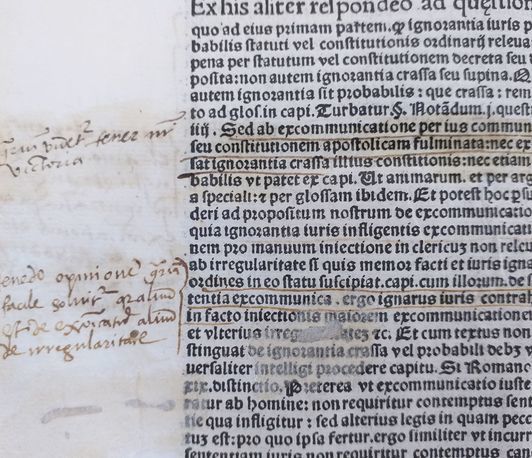 Ex his aliter respondeo ad question
quo ad eius primam partem.ꝙ ignorantia iuris p
babilis statuti vel constitutionis ordinarij releua
pena per statutum vel constitutionem decreta seu
posita:non autem ignorantia crassa seu supina.
autem ignorantia sit probabilis : que crassa : rem
to ad glos.in capi. Turbatur.§. Notādum.j.questi
iiij. Sed ab excommunicatione per ius commun
seu constitutionem apostolicam fulminata:nec ex
sat ignorantia crassa illius constitionis:nec etiam
babilis vt patet ex capi. Ut animarum. et per arg
a speciali: ⁊ per glossam ibidem. Et potest hoc
deri ad propositum nostrum de excommunicatio
quia ignorantia iuris infligentis excommunicati
nem pro manuum iniectione in clericuꝫ non releu
ab irregularitate si quis memor facti et iuris igna
ordines in eo statu suscipiat.capi.cum illorum.de
tentia excommunica . ergo ignarus iuris contra
in facto iniectionis maiorem excommunicatione
et vlterius ⁊c. Et cum textus non
stinguat de ignorantia crassa vel probabili debꝫ v
uersaliter intelligi procedere capitu. Si Romano
xix.distinctio. Preterea vt excommunicatio iuste
ratur ab homine: non requiritur contemptus sent
tie qua infligitur : sed alterius legis in quam pecc
tuꝫ est:pro quo ipsa fertur.ergo similiter vt incurr
sententiam iuris non requiritur contemptus can
tenere
victoria
tenedo opinione
facile
est de aliud
de irregularitate